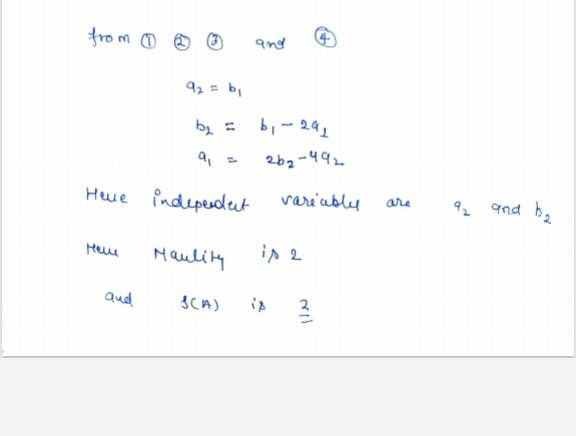 from ① ② ③ and ④
a₂ = b₁
b₂ = b₁ - 2a₁
a₁ = 2b₂ - 4a₂
Here independent variably are a₂ and b₂
Here Naulity is 2
and S(A) is 2